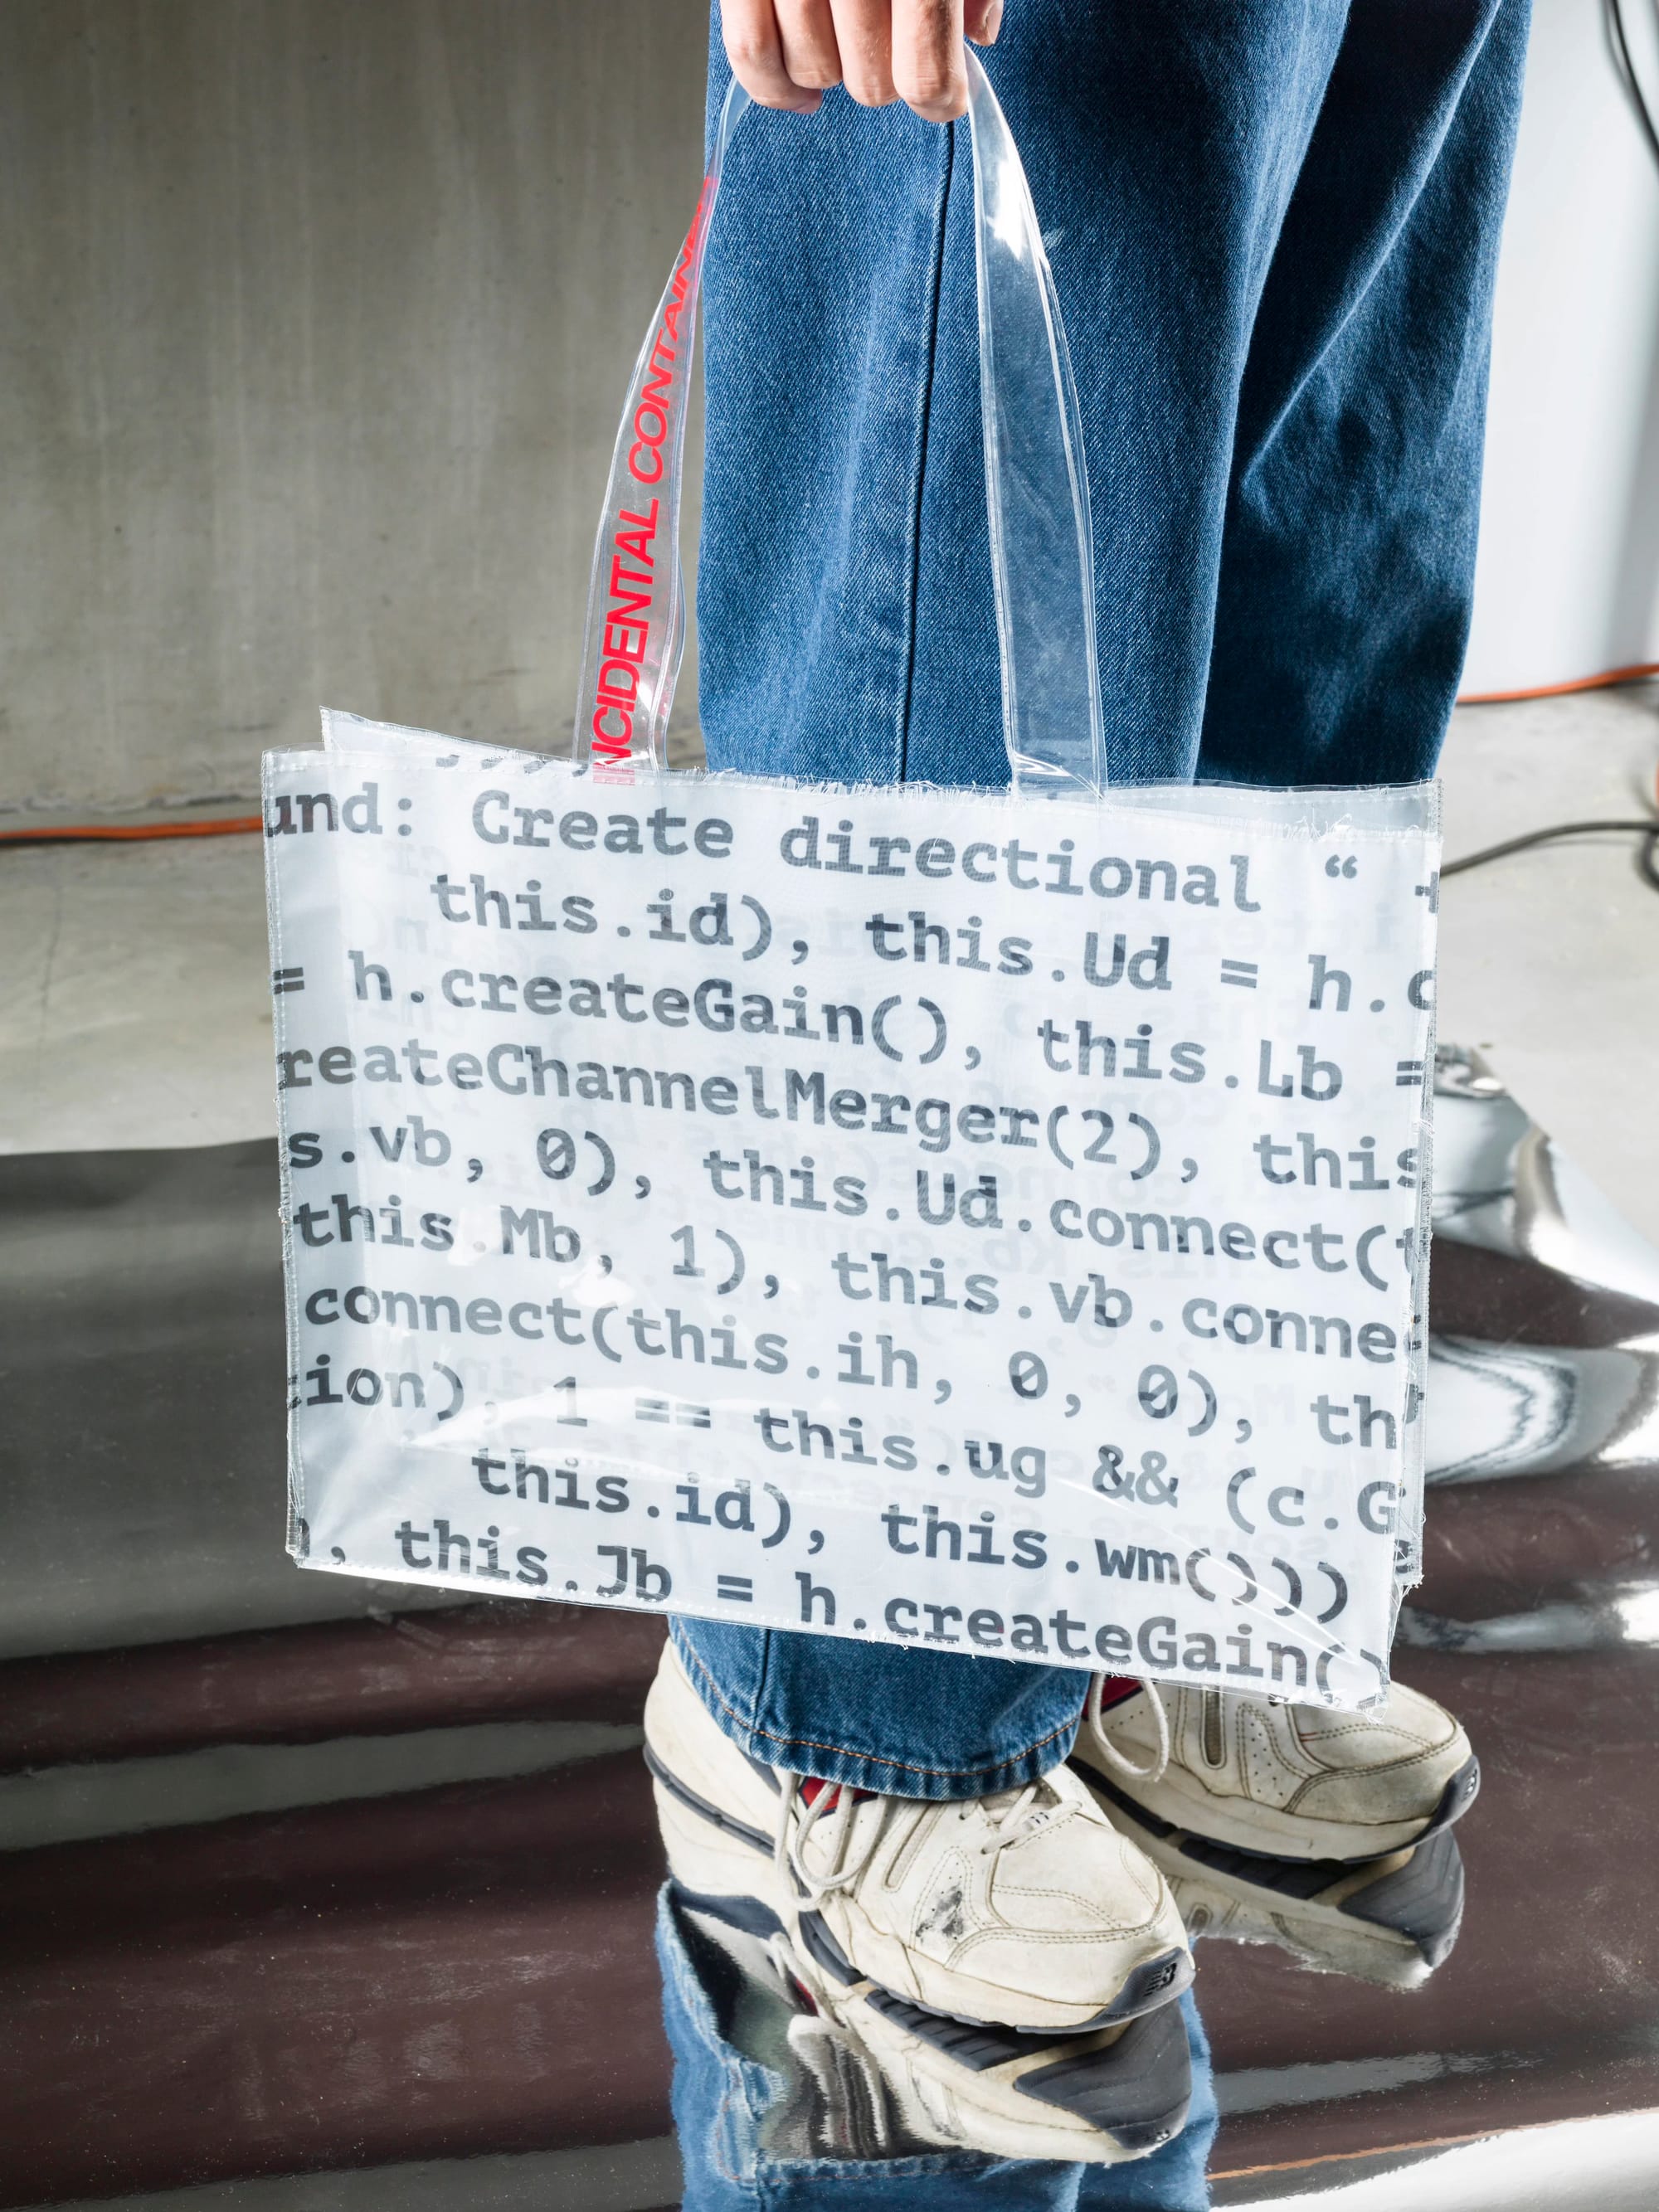 INCIDENTAL CONTAINER
und: Create directional “
this.id), this.Ud = h.c
= h.createGain(), this.Lb =
reateChannelMerger(2), this
s.vb, 0), this.Ud.connect(
this.Mb, 1), this.vb.conne
connect(this.ih, 0, 0), th
ion), 1 == this.ug && (c.G
this.id), this.wm()))
), this.Jb = h.createGain()